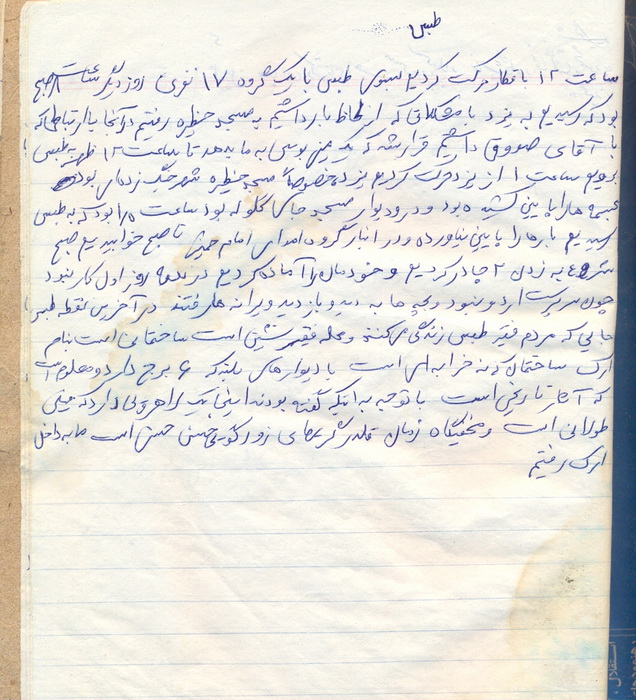 طبس
ساعت ۱۲ با قطار حرکت کردیم بسوی طبس با یک گروه ۱۷ نفری روز دیگر ساعت ۸ صبح
بود که رسیدیم به یزد با مشکلاتی که از لحاظ بار داشتیم به مسجد حظیره رفتیم در آنجا با ارتباطی که
با آقای صدوقی داشتیم قرار شد که یک مینی بوسی به ما بدهد تا ساعت ۱۲ ظهر به طبس
برویم ساعت ۱ از یزد حرکت کردیم یزد مخصوصاً مسجد حظیره شهر جنگ زده‌ای بود
مجسمه ها را پایین کشیده بود و در و دیوار مسجد جای گلوله بود ساعت ۱۰ بود که به طبس
رسیدیم بارها را پایین نیاورده و در انبار گروه امدادی امام خمینی تا صبح خوابیدیم صبح
شروع به زدن ۲ چادر کردیم و خودمان را آماده کردیم در روز اول کار نبود
چون سرپرست اردو نبود و بچه ها به دید و بازدید ویرانه ها رفتند در آخرین نقطه طبس
جایی که مردم فقیر طبس زندگی می‌کنند و محله فقیر نشین است ساختمانی است بنام
ارک ساختمان کهنه خرابه‌ای است با دیوارهای بلند که ۶ برج دارد و معلوم است
که آثار تاریخی است با توجه به اینکه گفته بودند اینجا یک راهرویی دارد که خیلی
طولانی است و مخفیگاه زمان قلدرهای زورگویی است ما به داخل
ارک رفتیم